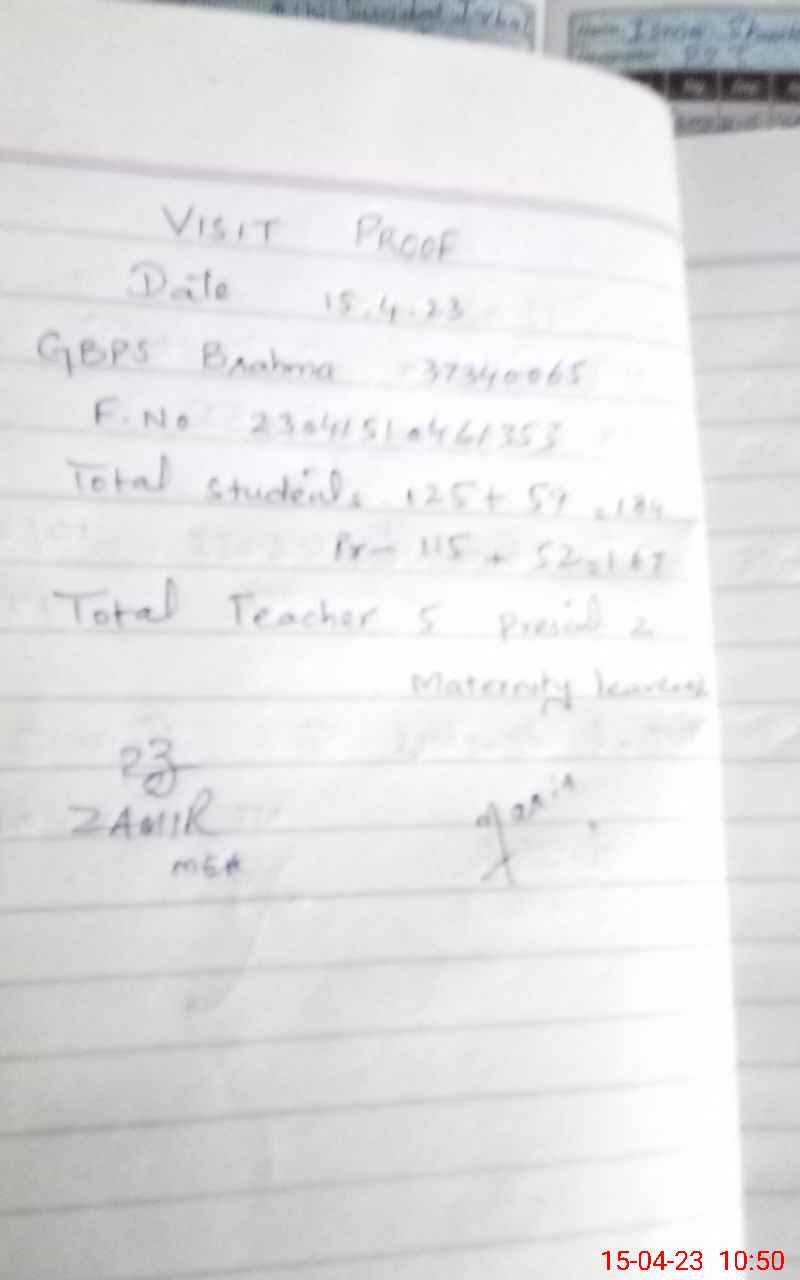 Iqbal
VISIT PROOF
Date 15.4.23
GBPS Brahma 37340065
F.No 23041510461353
Total students 125 + 59 = 184
Pr - 115 + 52 = 167
Total Teacher 5 Present 2
Maternity
ZAMIR
MEA
15-04-23 10:50